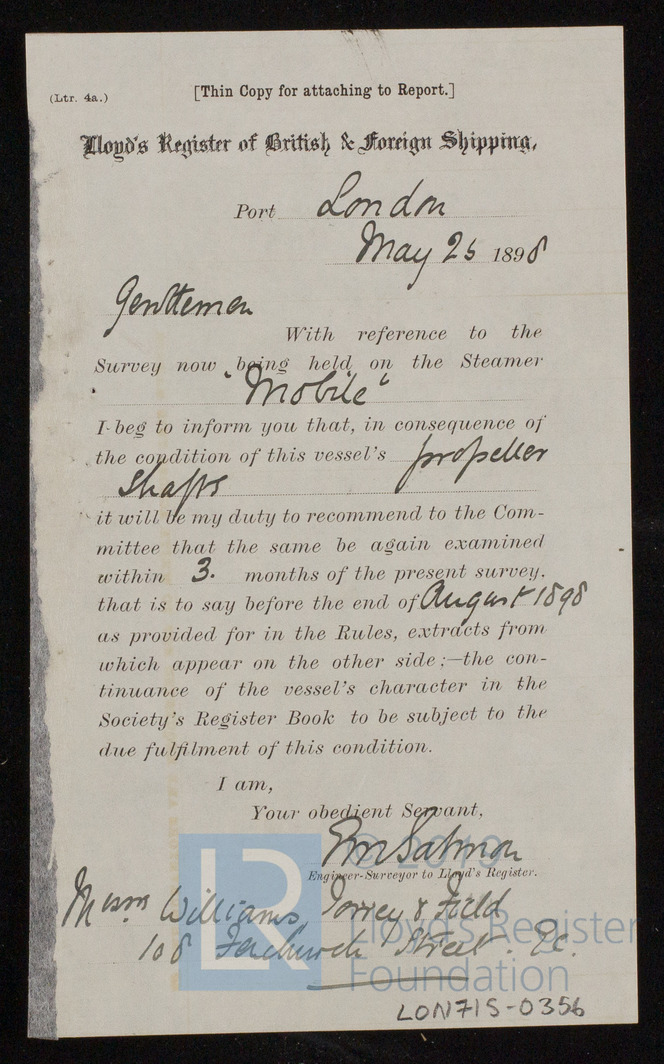 (Ltr. 4a.)
[Thin Copy for attaching to Report.]
Lloyd's Register of British & Foreign Shipping.
Port London
May 25 1898
Gentlemen
With reference to the
Survey now being held on the Steamer
"Mobile"
I beg to inform you that, in consequence of
the condition of this vessel's propeller
shafts
it will be my duty to recommend to the Com-
mittee that the same be again examined
within 3. months of the present survey.
that is to say before the end of August 1898
as provided for in the Rules, extracts from
which appear on the other side;—the con-
tinuance of the vessel's character in the
Society's Register Book to be subject to the
due fulfilment of this condition.
I am,
Your obedient Servant,
Salmon
© 2019
Engineer-Surveyor to Lloyd's Register.
Messrs Williams, Torrey & Field
108 Fenchurch Street. E.C.
LR
Lloyd's Register
Foundation
LON715-0356